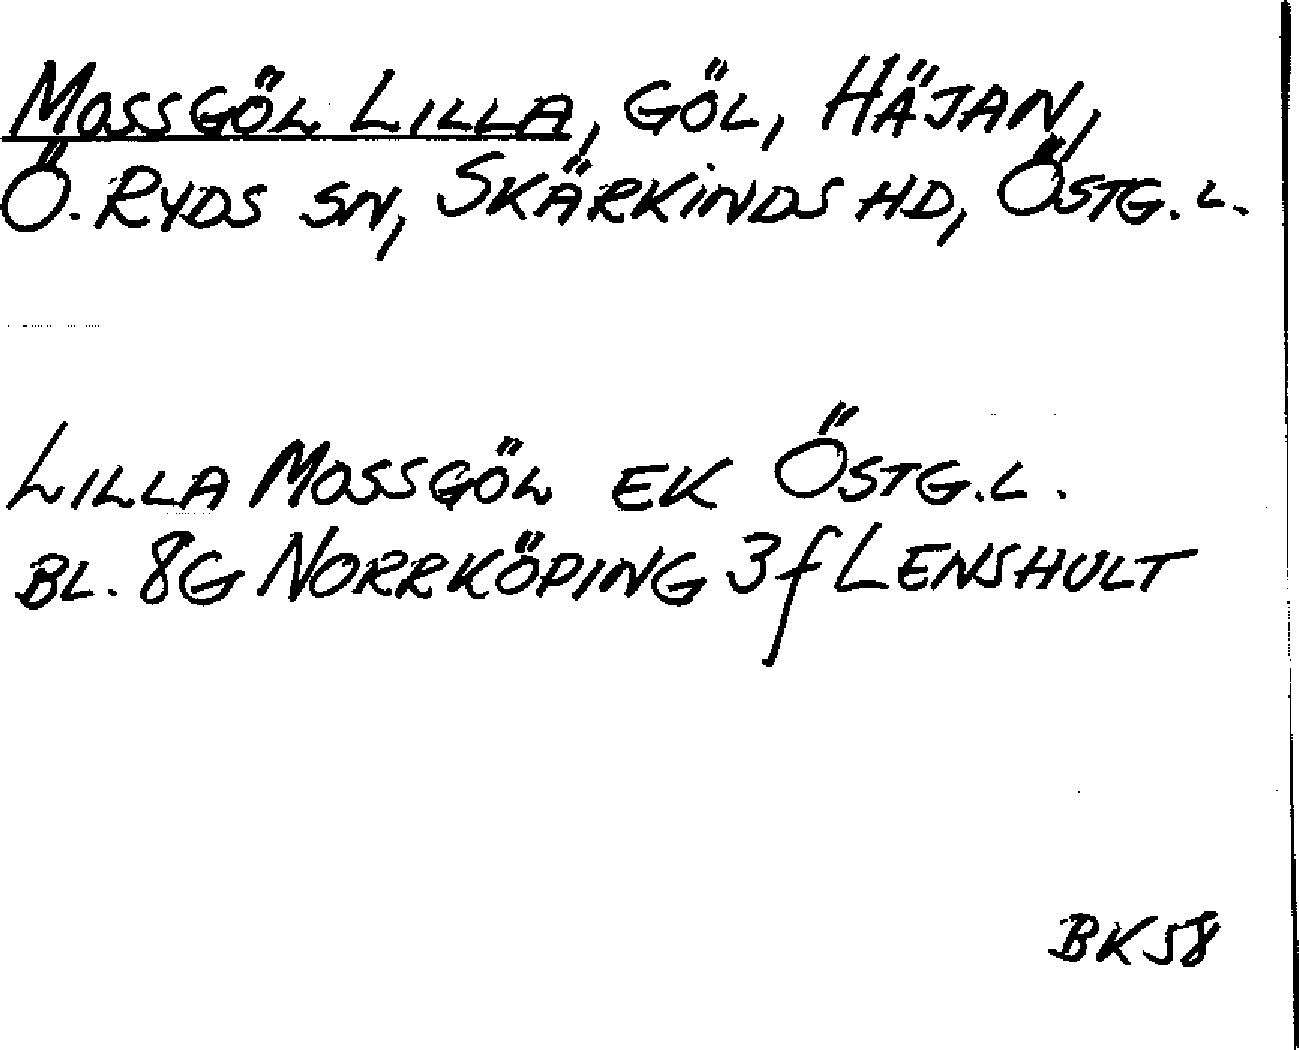 MOSSGÖL LILLA, GÖL, HÄJAN,
Ö. RYDS SN, SKÄRKINDS HD, ÖSTG. L.
LILLA MOSSGÖL EK ÖSTG.L.
BL. 8G NORRKÖPING 3f LENSHULT
BK58